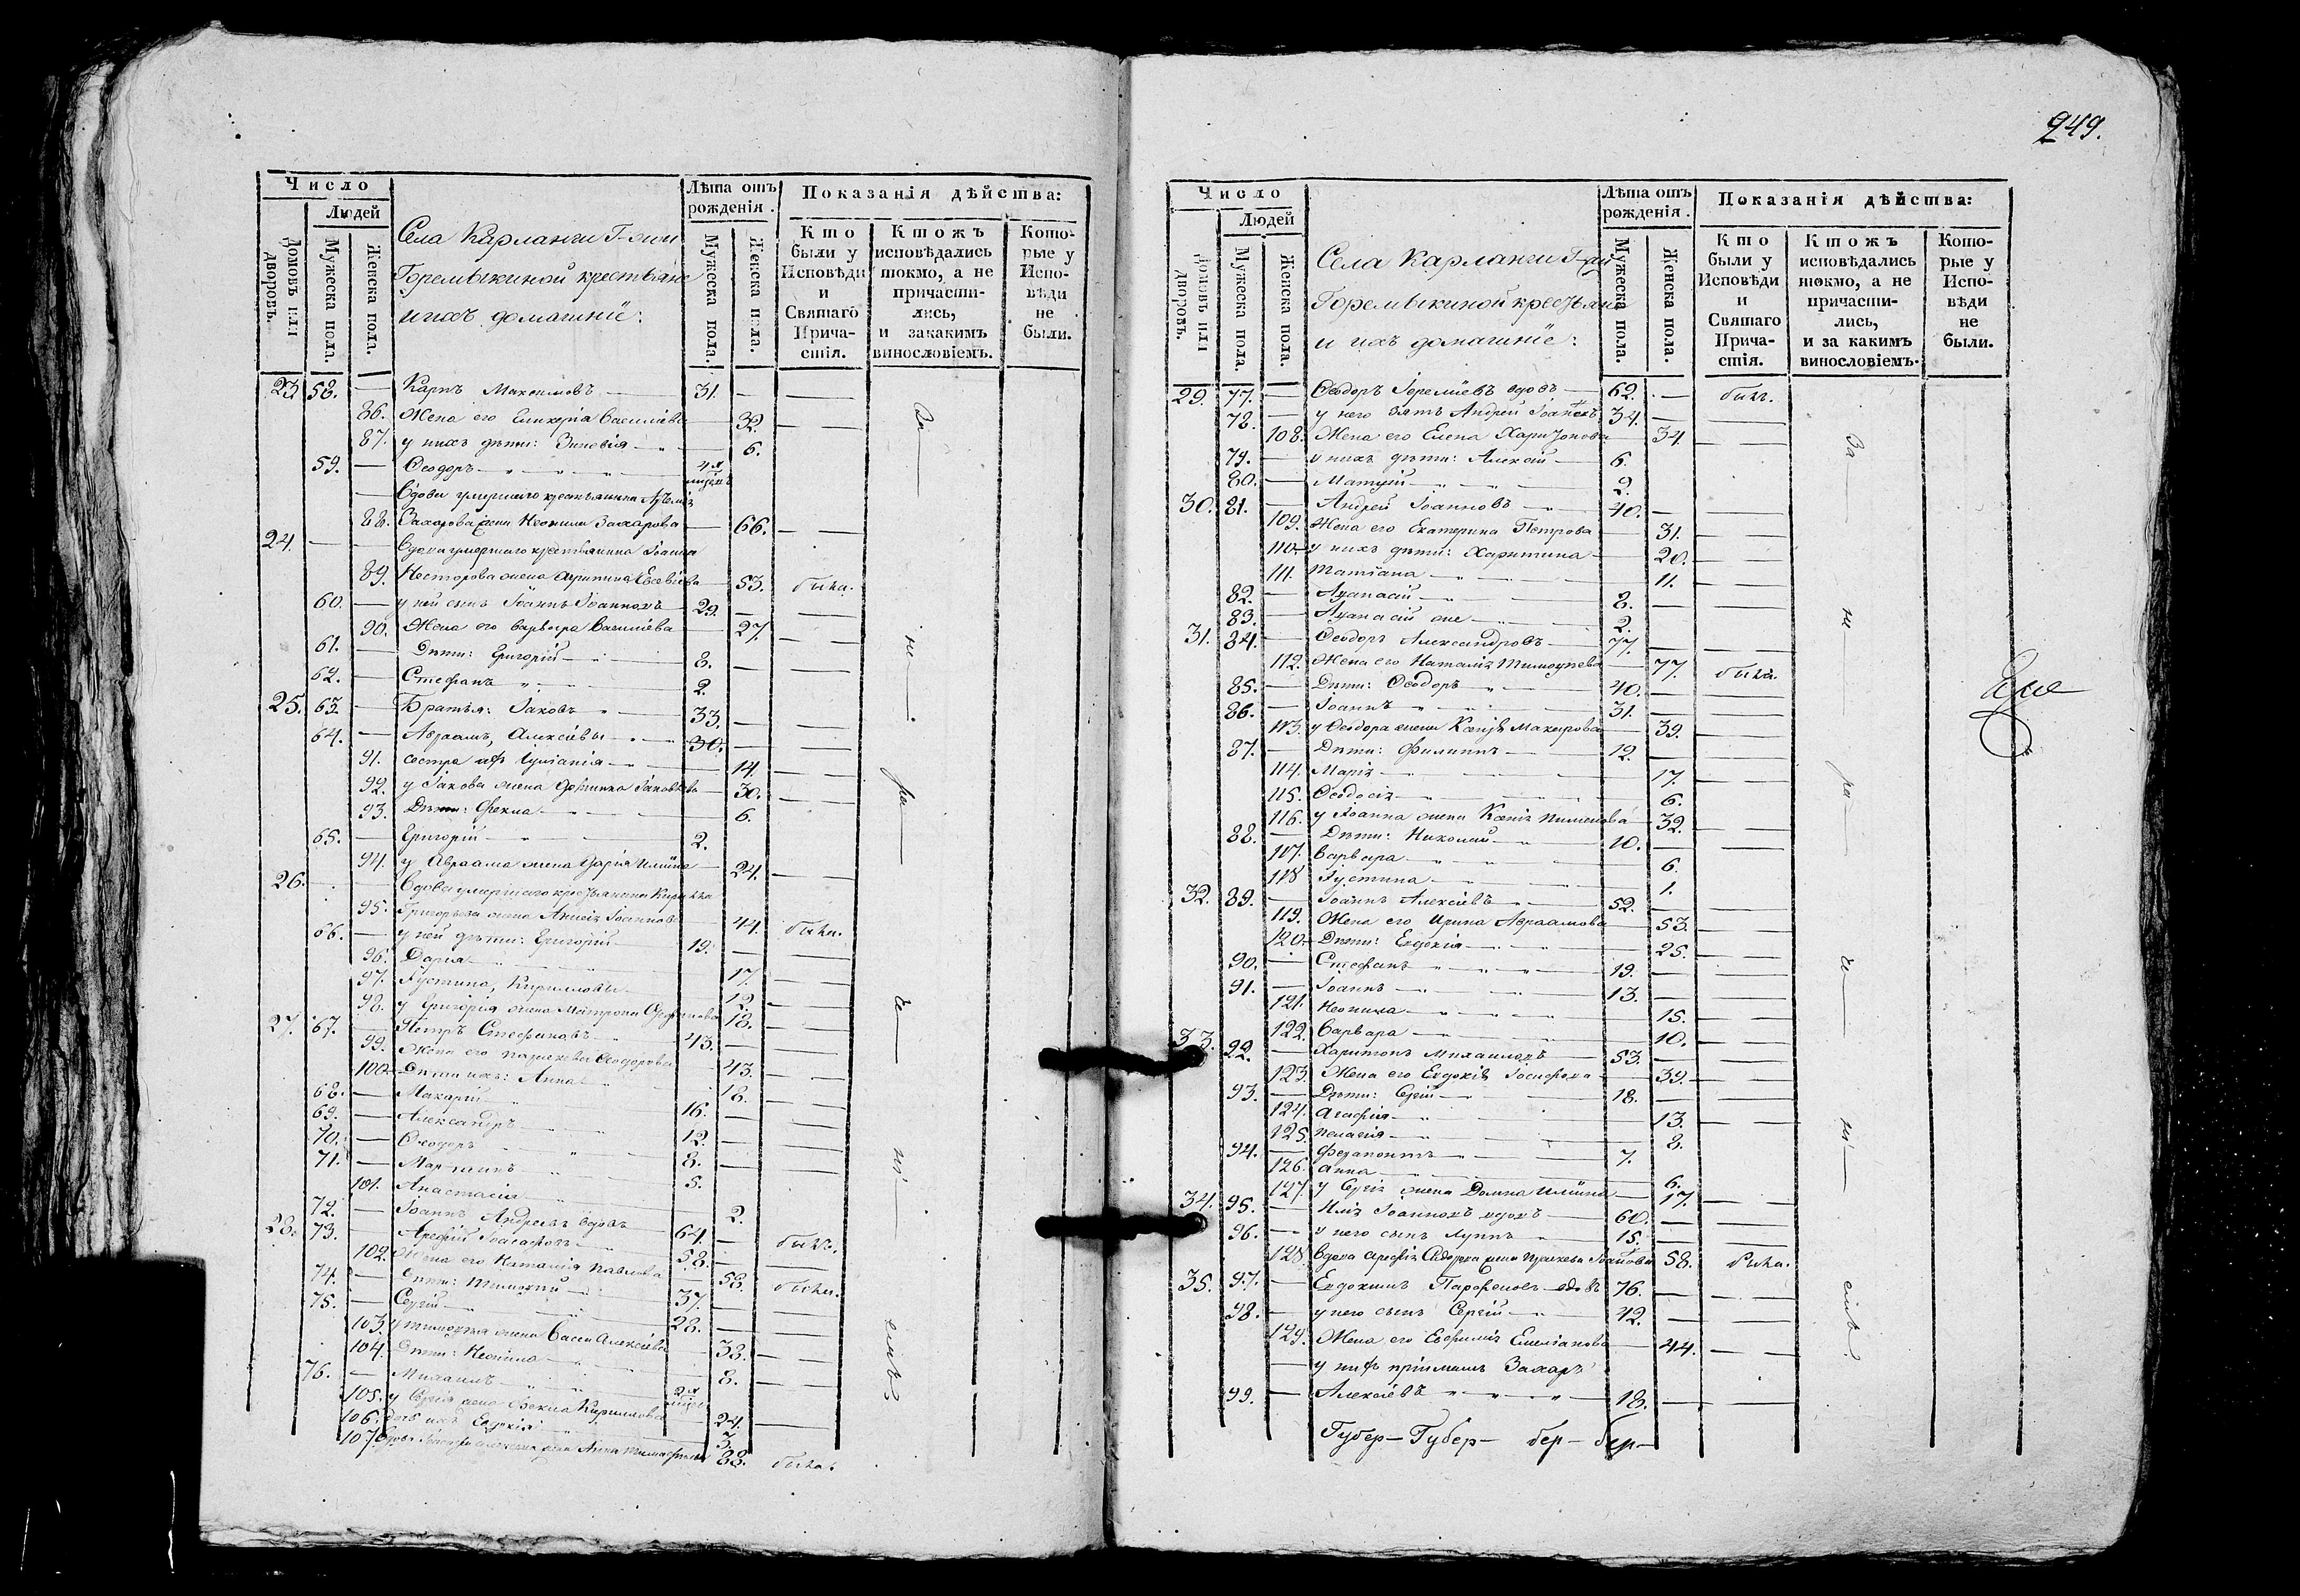 249.
Число
Людей
Домовъ или дворовъ.
Мужеска пола.
Женска пола.
Села Карланги Г-жи
Горемыкиной крестьяне
и ихъ домашнїе:
Лѣта отъ рожденія.
Мужеска пола.
Женска пола.
Показанія дѣйства:
Кто были у Исповѣди и Святаго Причастія.
Ктожъ исповѣдались токмо, а не причастились, и закакимъ винословіемъ.
Которые у Исповѣди не были.
23. 58. — Карпъ Максимовъ — 31. —
86. Жена его Гликерія Василіева — 32. —
87. у нихъ дѣти: Зиновія — 6.
59. — Ѳеодоръ — 4х
Вдова умершаго крестьянина
88. Захарова жена Неонила Захарова — 66. —
24. — — Вдова умершаго крестьянина Іоанна
89. Несторова жена Агрипина Евсевіева — 53. была.
60. — у ней сынъ Іоаннъ Іоанновъ 29. —
90. Жена его Варвара Василіева — 27. —
61. — Дѣти: Григорій — 8. —
62. — Стефанъ — 2.
25. 63. — Братья: Іаковъ — 33. —
64. — Авраамъ, Алексіевы — 30. —
91. сестра ихъ — 14. —
92. у Іакова жена Іаковлева — 30. —
93. Дѣти: Ѳекла — 6.
65. — Григорій — 2.
94. у Авраама жена Дарія Иліина — 24. —
26. — — Вдова умершаго крестьянина
95. Григорьева жена Анисія Іоаннова 44. была.
66. — у ней дѣти: Григорій — 19. —
96. Дарія — 17. —
97. Іустина, Кирилловы — 12. —
98. у Григорія жена Матрона 18. —
27. 67. — Петръ Стефановъ — 43. —
99. Жена его Параскева Ѳеодорова 43. —
100. Дѣти ихъ: Анна — 18. —
68. — Макарій — 16. —
69. — Александръ — 12. —
70. — Ѳеодоръ — 8. —
71. — Мартинъ — 5.
101. Анастасія — 2.
72. — Іоаннъ Андреевъ вдовъ 64. — былъ.
28. 73. — Арефій Іоасафовъ — 58. —
102. Жена его Наталія Павлова — 58. была.
74. — Дѣти: Тимофей — 37. —
75. — Сергій — 28. —
103. у Тимофея жена Васса Алексіева 38. —
104. Дѣти: Неонила — 8. —
76. — Михаилъ — 2х
105. у Сергія жена Ѳекла Кириллова 24. —
106. дочь ихъ Евдокія 3.
107. Вдова жена Анна 88. была.
За — не — ра — че — ні — емъ
Число
Людей
Домовъ или дворовъ.
Мужеска пола
Женска пола.
Села Карланги Г-жи
Горемыкиной крестьяне
и ихъ домашнїе:
Лѣта отъ рожденія.
Мужеска пола.
Женска пола.
Показанія дѣйства:
Кто были у Исповѣди и Святаго Причастія.
Ктожъ исповѣдались токмо, а не причастились, и за какимъ винословіемъ.
Которые у Исповѣди не были.
29. 77. — Ѳеодоръ Іереміевъ вдовъ — 62. — былъ.
78. — у него зять Андрей Іоанновъ 34. —
108. Жена его Елена Харитонова — 34. —
79. — у нихъ дѣти: Алексій — 6.
80. — Матѳій — 2.
30. 81. — Андрей Іоанновъ — 40. —
109. Жена его Екатерина Петрова — 31. —
110. у нихъ дѣти: Харитина — 20. —
111. Татіана — 11. —
82. — Аѳанасій — 8. —
83. — Аѳанасій же — 2.
31. 84. — Ѳеодоръ Александровъ — 77. —
112. Жена его Наталія Тимоѳеева — 77. была.
85. — Дѣти: Ѳеодоръ — 40. —
86. — Іоаннъ — 31. —
113. у Ѳеодора жена Ксенія Макарова — 39. —
87. — Дѣти: Филиппъ — 12. —
114. Марія — 17. —
115. Ѳеодосія — 6.
116. у Іоанна жена Ксенія Пименова — 32. —
88. — Дѣти: Николай — 10. —
117. Варвара — 6.
118 Іустина — 1.
32. 89. — Іоаннъ Алексіевъ — 52. —
119. Жена его Ирина Авраамова — 53. —
120. Дѣти: Евдокія — 25. —
90. — Стефанъ — 19. —
91. — Іоаннъ — 13. —
121. Неонила — 15. —
122. Варвара — 10. —
33. 92. — Харитонъ Михаиловъ — 53. —
123. Жена его Евдокія Іосифова — 39. —
93. — Дѣти: Сергій — 18. —
124. Агафія — 13. —
125. Пелагія — 8.
94. — Ферапонтъ — 7.
126. Анна — 6.
127. у Сергія жена Домна Иліина — 17. —
34. 95. — Илія Іоанновъ вдовъ — 60. —
96. — у него сынъ Луппъ — 15. —
128. Вдова жена Параскева Іоанова 58. была.
35. 97. — Евдокимъ Парфеновъ вдовъ 76. —
98. — у него сынъ Сергій — 42. —
129. Жена его Евфимія Емеліанова — 44. —
— у нихъ пріимышъ Захаръ
99. — Алексіевъ — 18. —
Губер— Губер— бер— бер—
За — не — ра — че — ні — емъ.